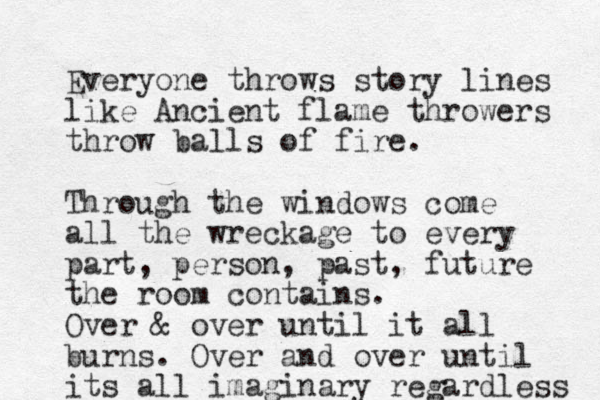 Everyone throws story lines
like Ancient flame throwers
throw balls of fire.

Through the windows come
all the wreckage to every
part, person, past, future
the room contains.
Over & over until it all
burns. Over and over until
its all imaginary regardless